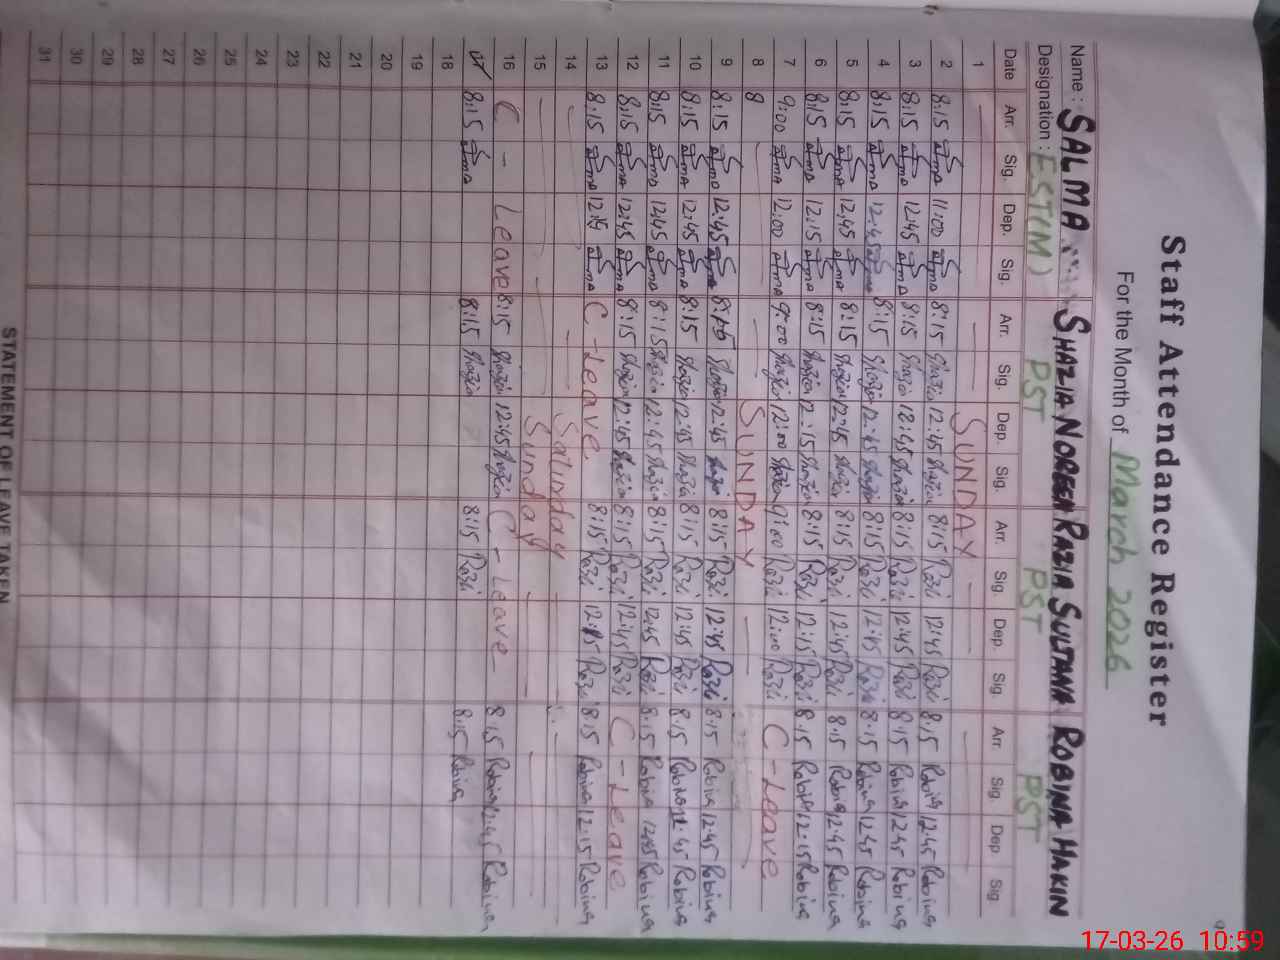 Staff Attendance Register
For the Month of March 2026
Name : SALMA SHAZIA NOREEN RAZIA SULTANA ROBINA HAKIN
Designation : EST(M) PST PST PST
Date Arr. Sig. Dep. Sig. Arr. Sig. Dep. Sig. Arr. Sig. Dep. Sig. Arr. Sig. Dep Sig
1 SUNDAY
2 8:15 11:00 8:15 Shazia 12:45 Shazia 8:15 Razi 12:45 Razi 8:15 Robina 12:45 Robina
3 8:15 12:45 8:15 Shazia 12:45 Shazia 8:15 Razi 12:45 Razi 8:15 Robina 12:45 Robina
4 8:15 12:45 8:15 Shazia 12:45 Shazia 8:15 Razi 12:45 Razi 8:15 Robina 12:45 Robina
5 8:15 12:45 8:15 Shazia 12:45 Shazia 8:15 Razi 12:45 Razi 8:15 Robina 12:45 Robina
6 8:15 12:15 8:15 Shazia 12:15 Shazia 8:15 Razi 12:15 Razi 8:15 Robina 12:15 Robina
7 9:00 12:00 9:00 Shazia 12:00 Shazia 9:00 Razi 12:00 Razi C-Leave
8 8 SUNDAY
9 8:15 12:45 Shazia 12:45 Shazia 8:15 Razi 12:45 Razi 8:15 Robina 12:45 Robina
10 8:15 12:45 8:15 Shazia 12:45 Shazia 8:15 Razi 12:45 Razi 8:15 Robina 12:45 Robina
11 8:15 12:45 8:15 Shazia 12:45 Shazia 8:15 Razi 12:45 Razi 8:15 Robina 12:45 Robina
12 8:15 12:45 8:15 Shazia 12:45 Shazia 8:15 Razi 12:45 Razi C-Leave
13 8:15 12:15 C-Leave 8:15 Razi 12:15 Razi 8:15 Robina 12:15 Robina
14 Saturday
15 Sunday
16 C - Leave 8:15 Shazia 12:45 Shazia C-Leave 8:15 Robina 12:45 Robina
17 8:15 8:15 Shazia 8:15 Razi 8:15 Robina
18
19
20
21
22
23
24
25
26
27
28
29
30
31
STATEMENT OF LEAVE TAKEN
17-03-26 10:59